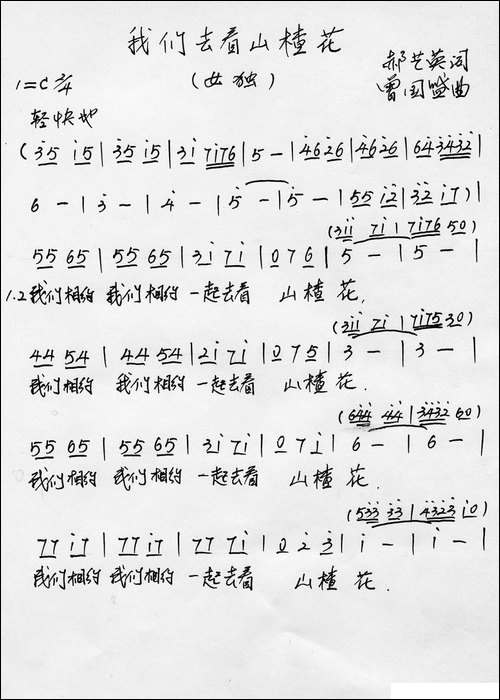 我们去看山楂花
(女独)
郝艺英词
曾国盛曲
1=C 2/4
轻快地
(35 15 | 35 15 | 31 7176 | 5 - | 4626 | 4626 | 643432 |
6 - | 3 - | 4 - | 5 - | 5 - | 55 12 | 32 17) |
(311 71 | 7176 50)
55 65 | 55 65 | 31 71 | 076 | 5 - | 5 - |
1.2我们相约 我们相约 一起去看 山楂 花,
(311 71 | 7175 30)
44 54 | 44 54 | 21 71 | 075 | 3 - | 3 - |
我们相约 我们相约 一起去看 山楂 花.
(644 44 | 3432 60)
55 65 | 55 65 | 31 71 | 071 | 6 - | 6 - |
我们相约 我们相约 一起去看 山楂 花.
(533 33 | 4323 10)
77 17 | 77 17 | 77 71 | 023 | 1 - | 1 - |
我们相约 我们相约 一起去看 山楂 花.